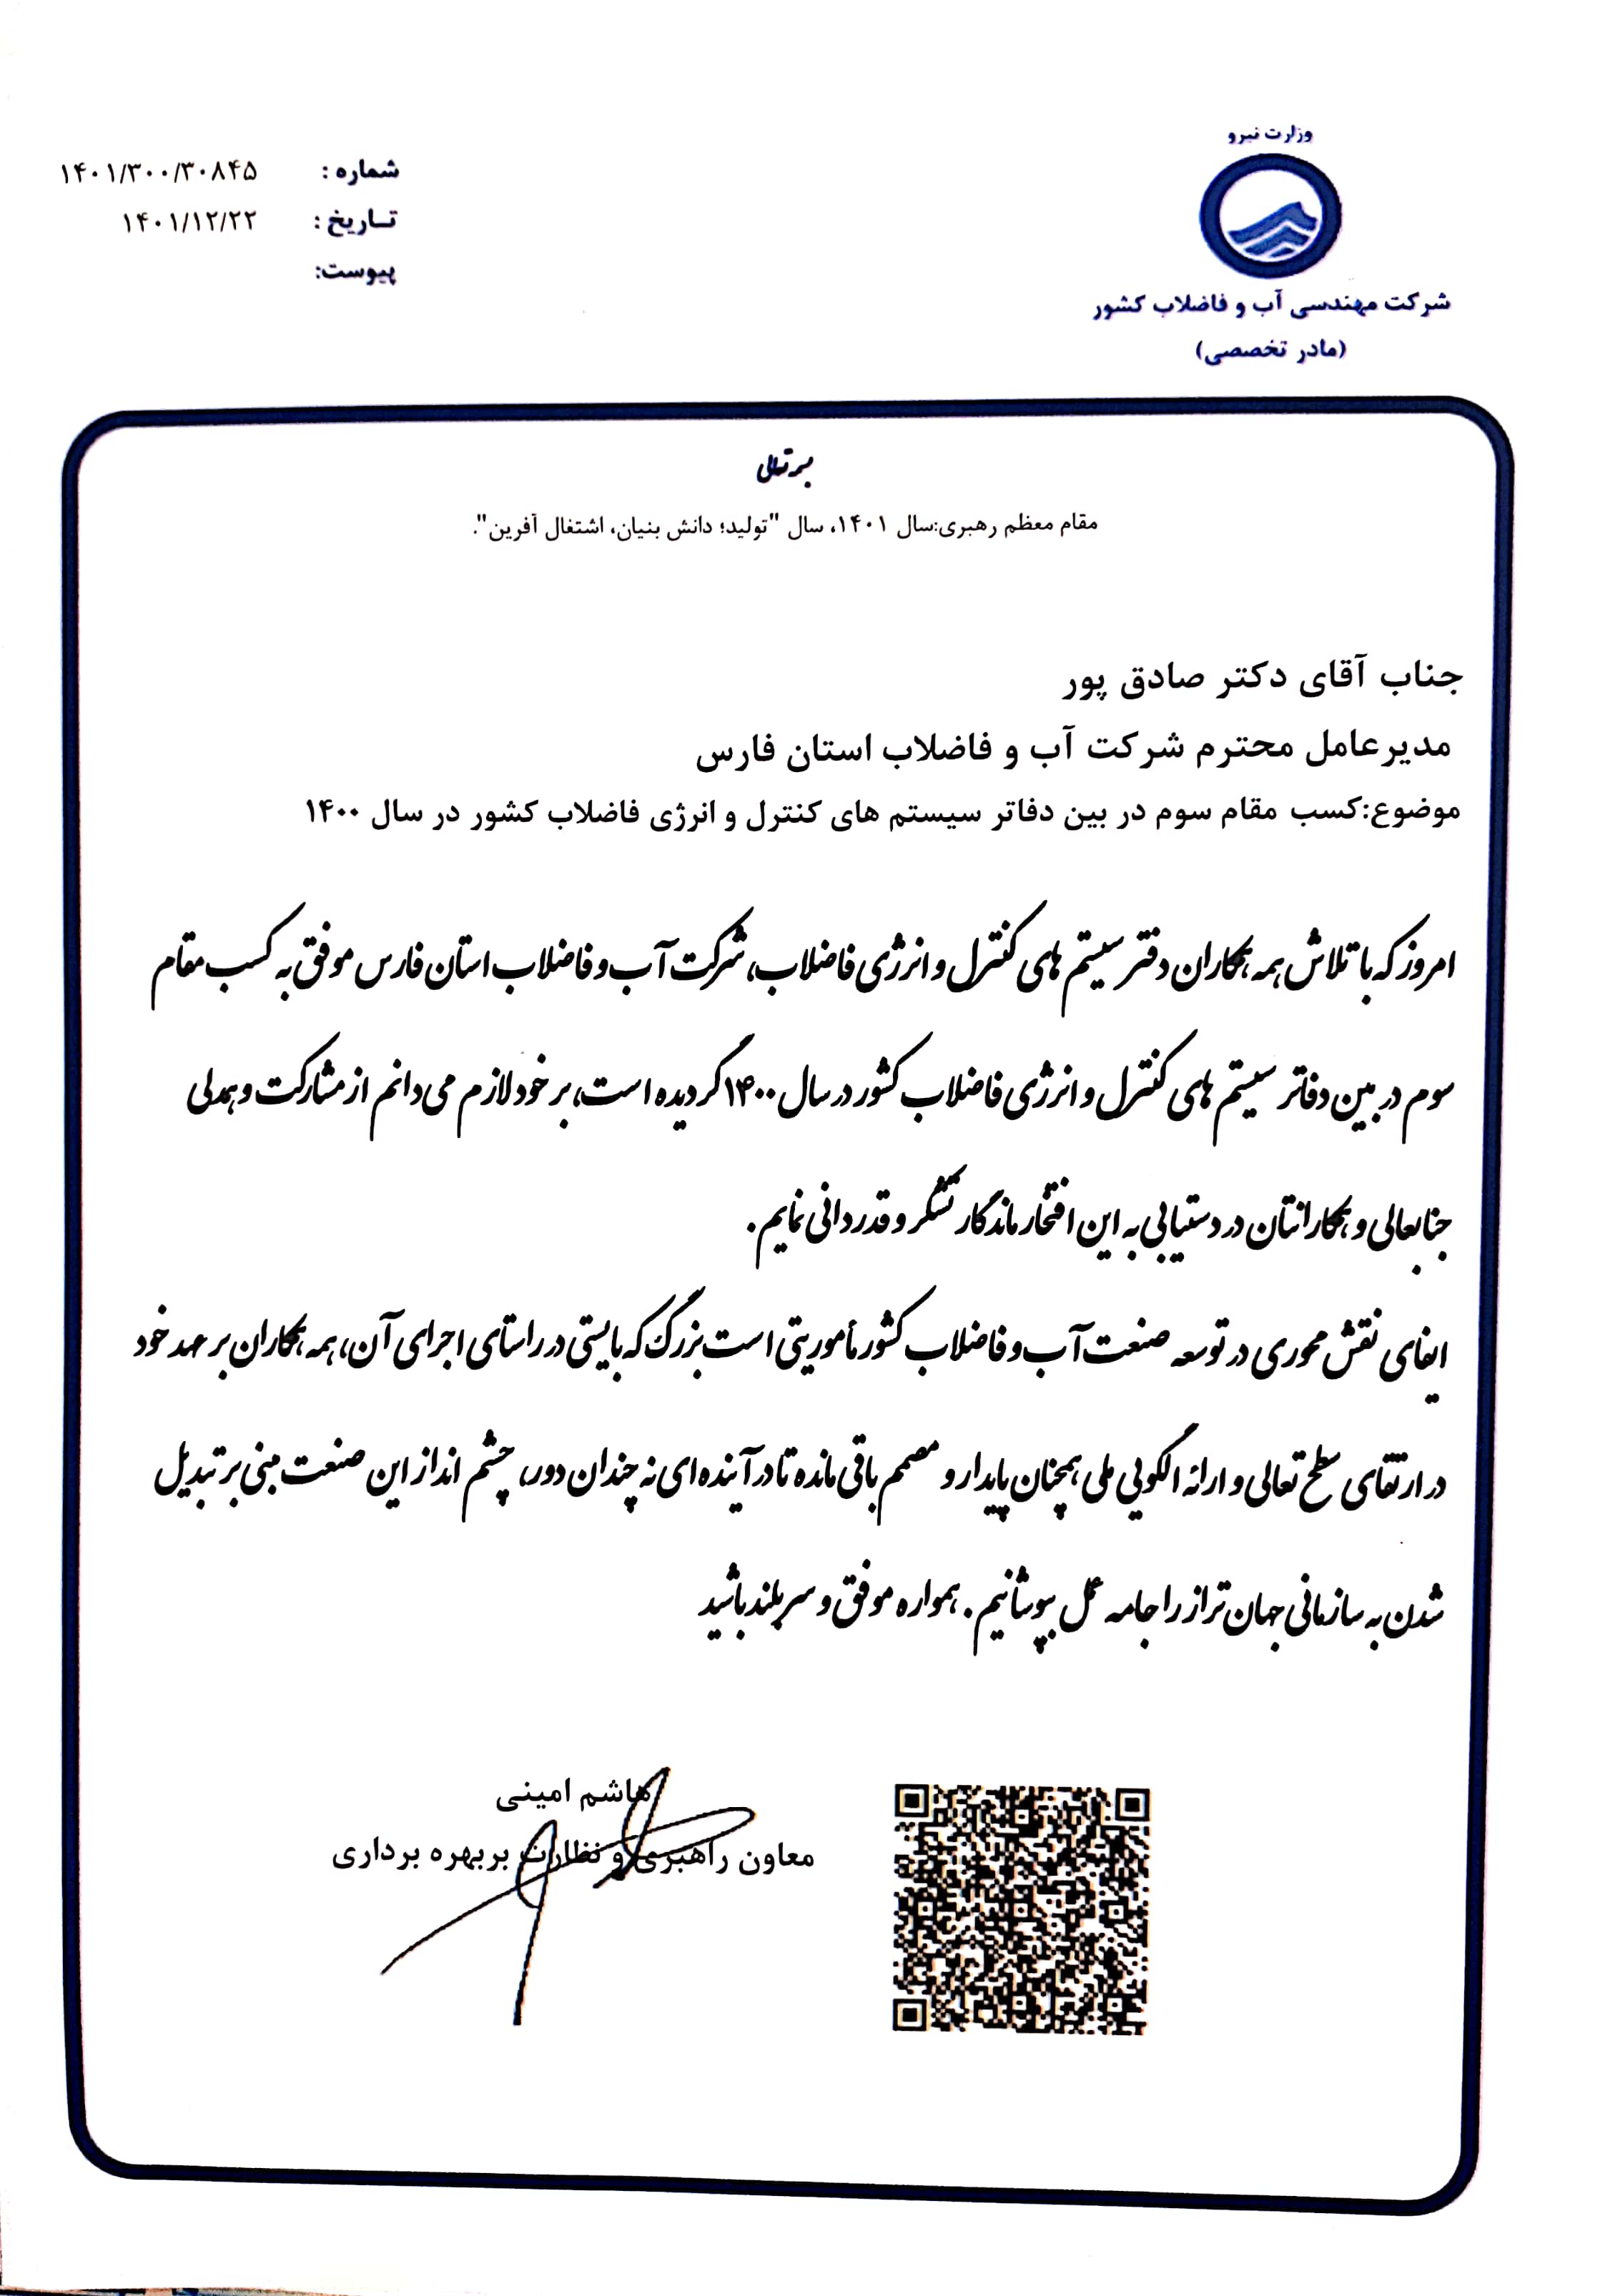 وزارت نیرو
شرکت مهندسی آب و فاضلاب کشور
(مادر تخصصی)
شماره : ۱۴۰۱/۳۰۰/۳۰۸۴۵
تاریخ : ۱۴۰۱/۱۲/۲۲
پیوست:
بسمه تعالی
مقام معظم رهبری:سال ۱۴۰۱، سال "تولید؛ دانش بنیان، اشتغال آفرین".
جناب آقای دکتر صادق پور
مدیرعامل محترم شرکت آب و فاضلاب استان فارس
موضوع:کسب مقام سوم در بین دفاتر سیستم های کنترل و انرژی فاضلاب کشور در سال ۱۴۰۰
امروز که با تلاش همه همکاران دفتر سیستم های کنترل و انرژی فاضلاب، شرکت آب و فاضلاب استان فارس موفق به کسب مقام
سوم در بین دفاتر سیستم های کنترل و انرژی فاضلاب کشور در سال ۱۴۰۰ گردیده است، بر خود لازم می‌دانم از مشارکت و همدلی
جنابعالی و همکارانتان در دستیابی به این افتخار ماندگار تشکر و قدردانی نمایم.
ایفای نقش محوری در توسعه صنعت آب و فاضلاب کشور مأموریتی است بزرگ که بایستی در راستای اجرای آن، همه همکاران بر عهد خود
در ارتقای سطح تعالی و ارائه الگویی ملی همچنان پایدار و مصمم باقی مانده تا در آینده‌ای نه چندان دور، چشم انداز این صنعت مبنی بر تبدیل
شدن به سازمانی جهان تراز را جامه عمل بپوشانیم. همواره موفق و سربلند باشید
هاشم امینی
معاون راهبری و نظارت بربهره برداری